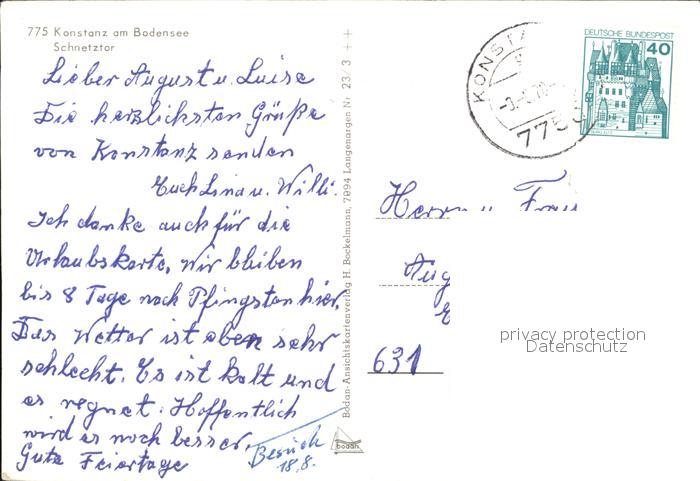 775 Konstanz am Bodensee
Schnetztor
Lieber August u. Luise
Die herzlichsten Grüße
von Konstanz senden
Euch Lina u. Willi.
Ich danke auch für die
Urlaubskarte, wir bleiben
bis 8 Tage nach Pfingsten hier.
Das Wetter ist aber sehr
schlecht. Es ist kalt und
es regnet. Hoffentlich
wird es noch besser.
Gute Feiertage
Besuch
18.8.
Bodan-Ansichtskartenverlag H. Bockelmann, 7994 Langenargen Nr. 23/3
bodan
KONSTA
775
DEUTSCHE BUNDESPOST
40
Herrn u Frau
Aug
631
privacy protection
Datenschutz